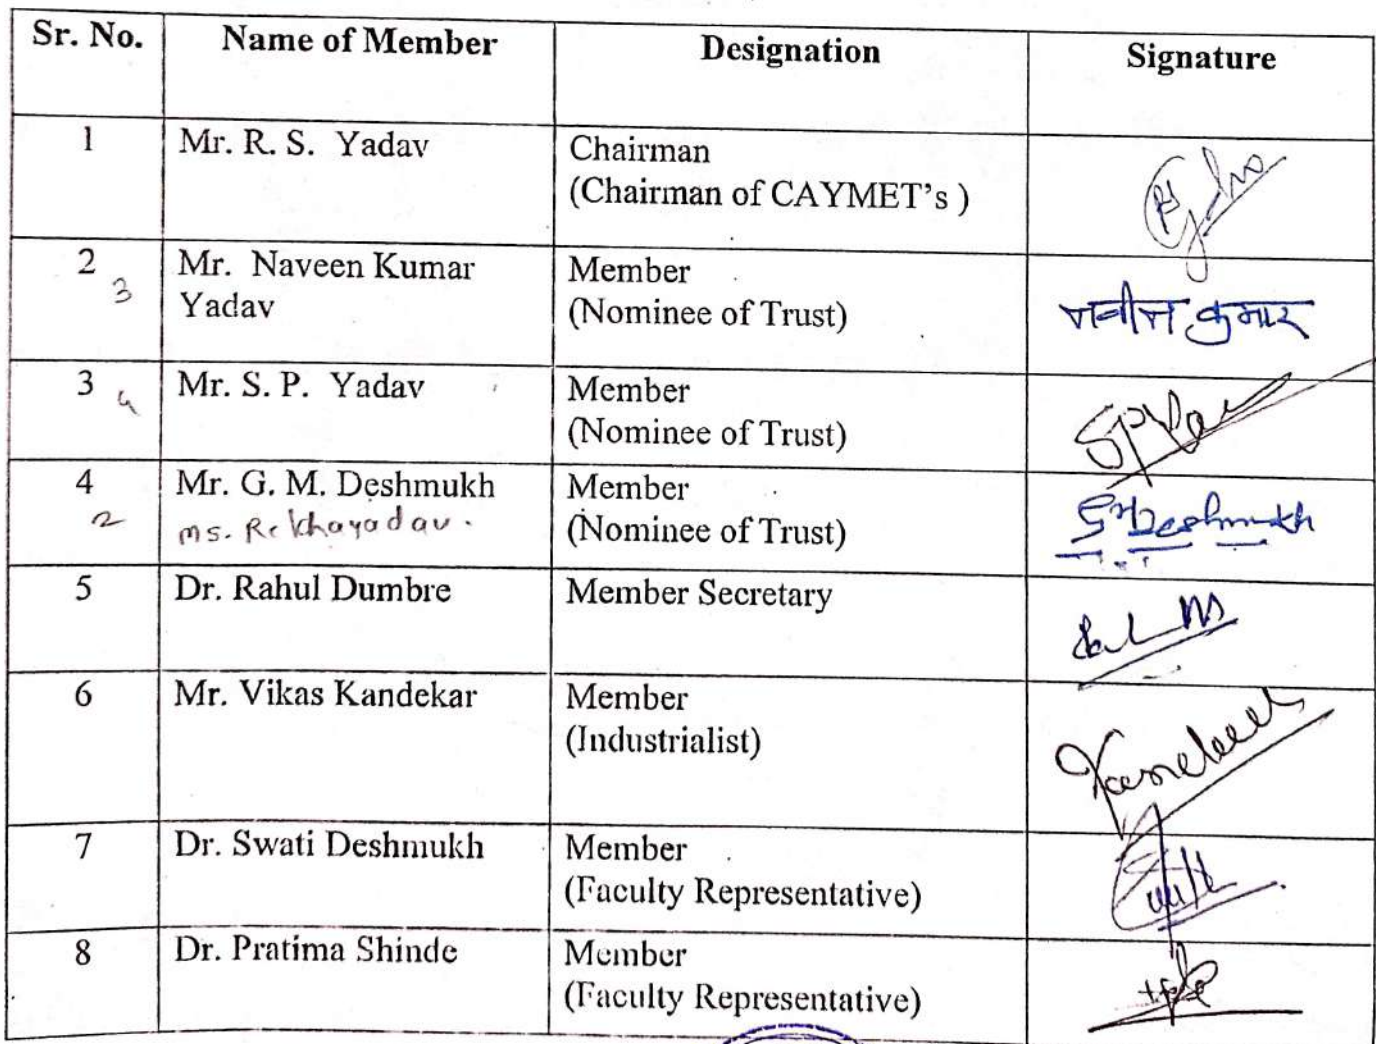 Sr. No. Name of Member Designation Signature
1 Mr. R. S. Yadav Chairman
(Chairman of CAYMET's )
2 Mr. Naveen Kumar Member
3 Yadav (Nominee of Trust) नवीन कुमार
3 Mr. S. P. Yadav Member
4 (Nominee of Trust)
4 Mr. G. M. Deshmukh Member
2 Ms. Rekha yadav. (Nominee of Trust) GMDeshmukh
5 Dr. Rahul Dumbre Member Secretary
6 Mr. Vikas Kandekar Member
(Industrialist)
7 Dr. Swati Deshmukh Member
(Faculty Representative)
8 Dr. Pratima Shinde Member
(Faculty Representative)